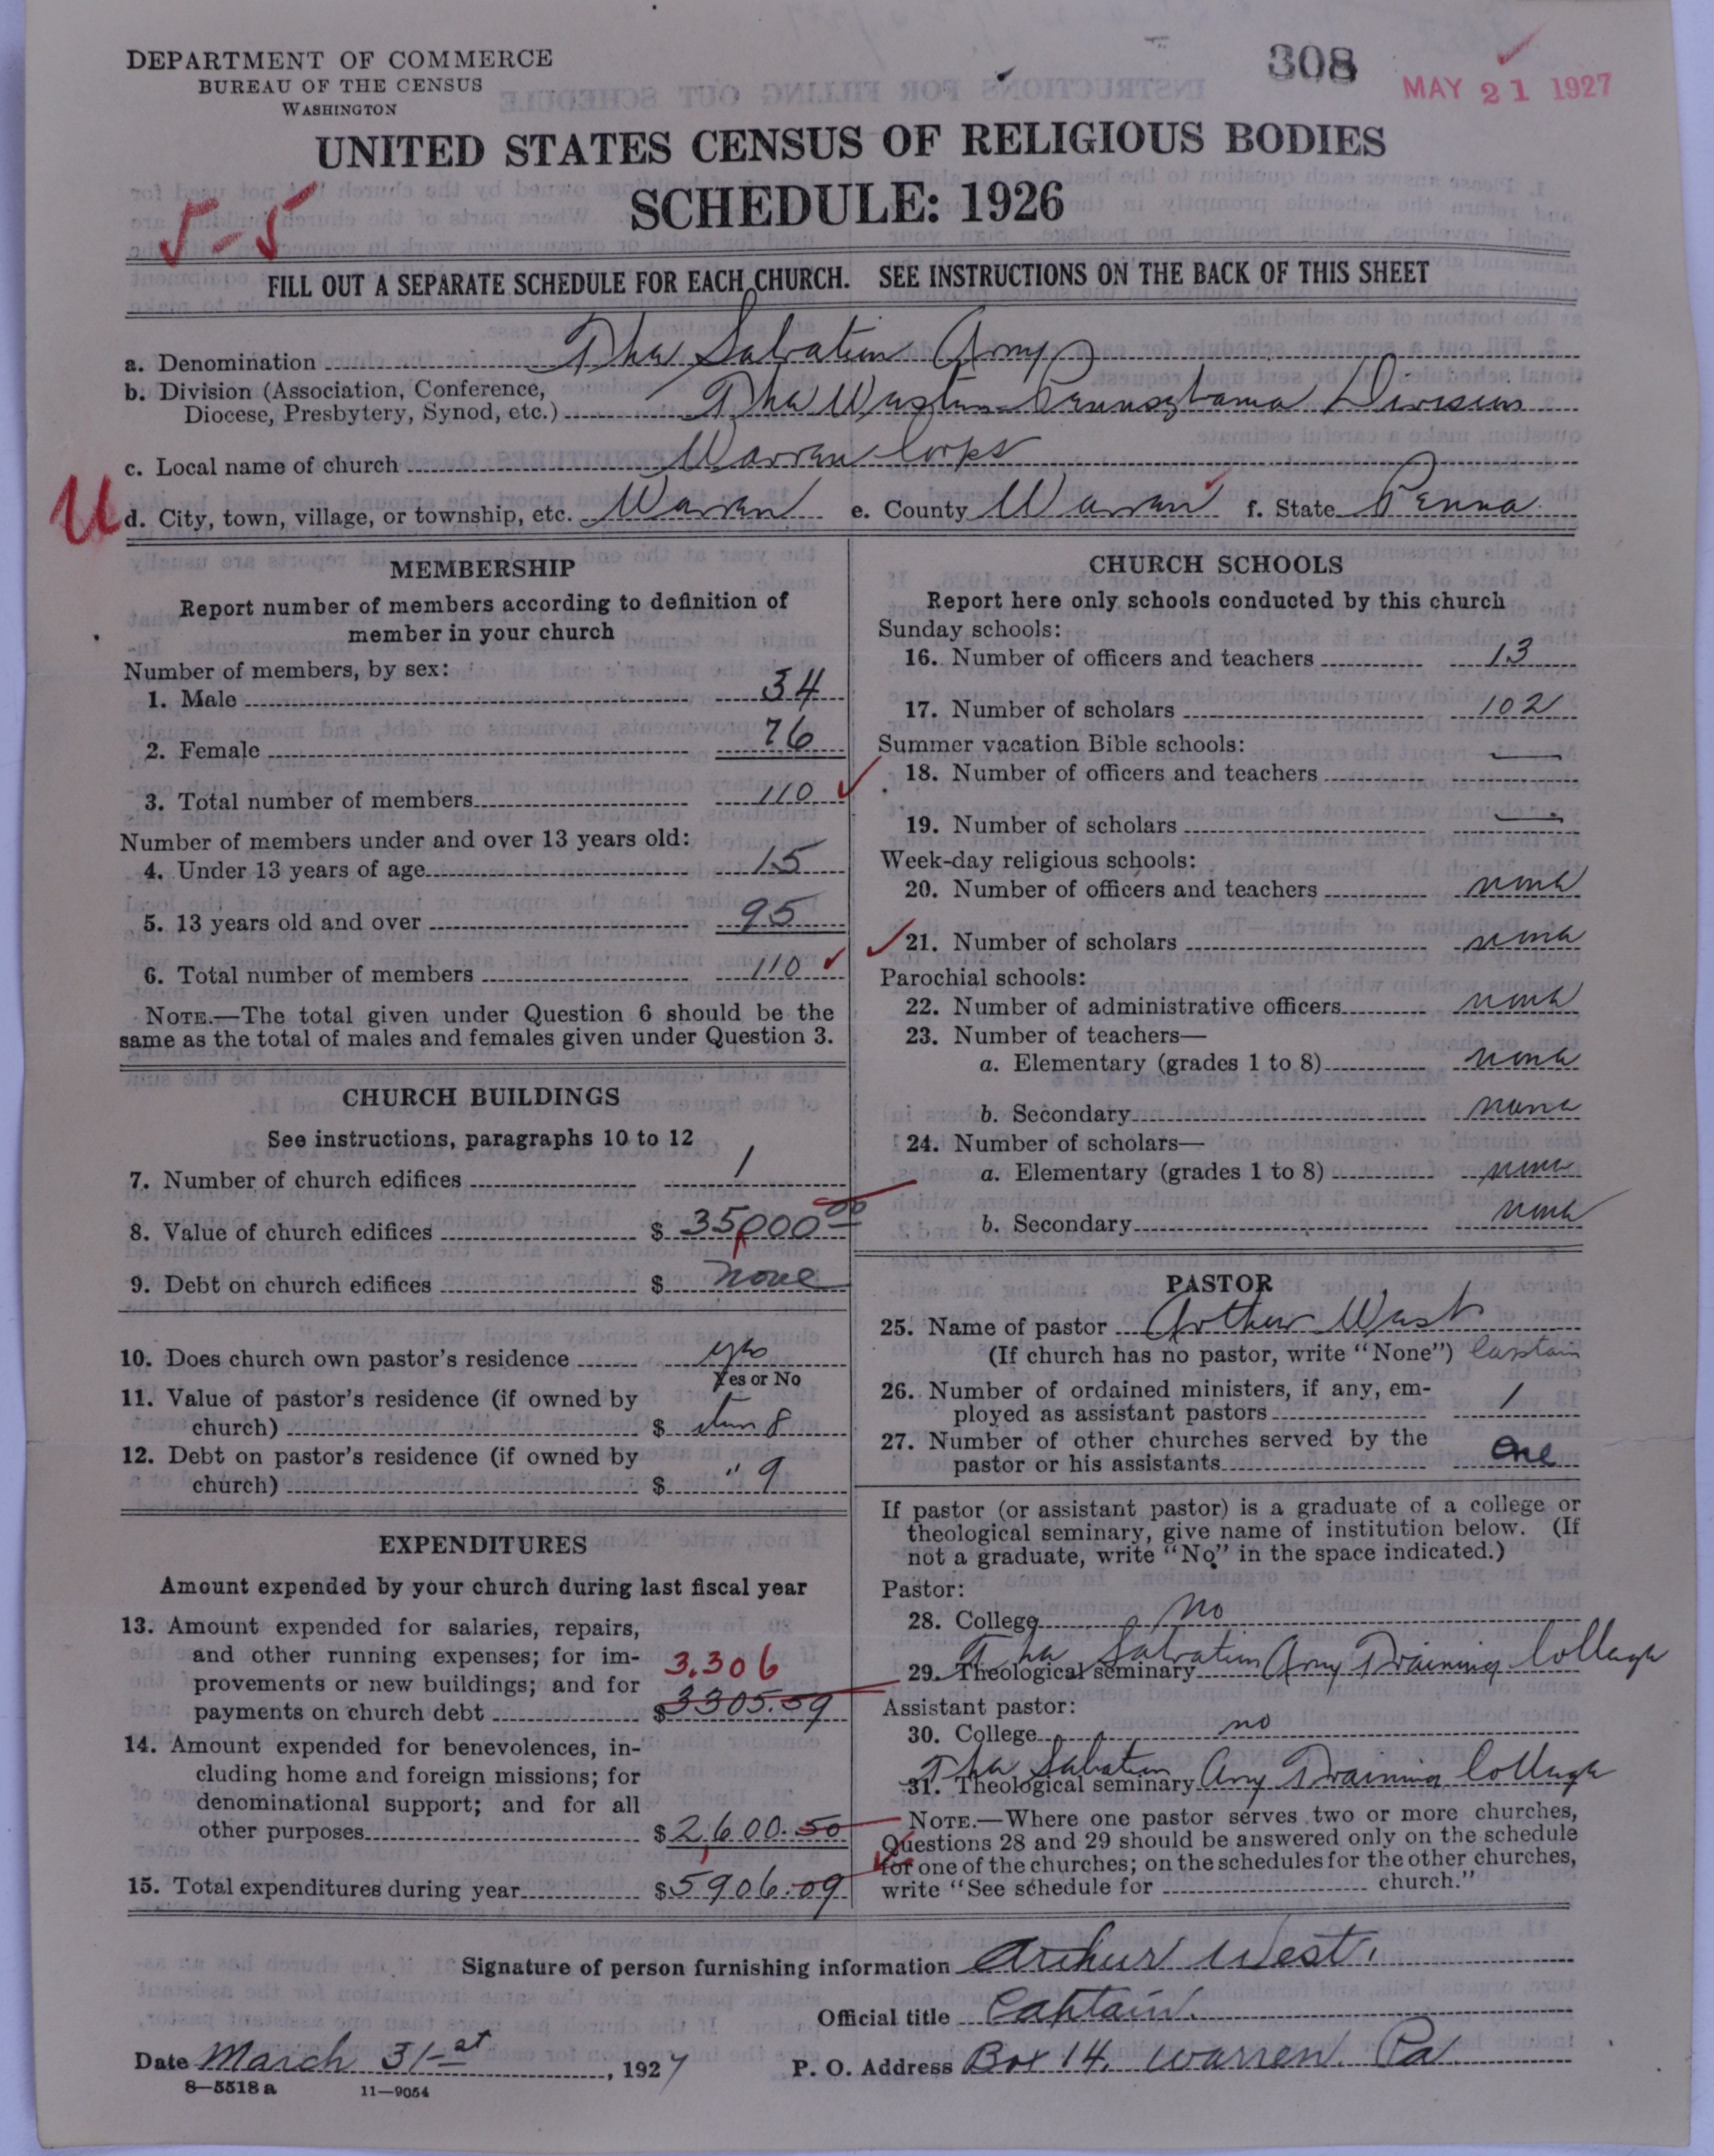 DEPARTMENT OF COMMERCE
BUREAU OF THE CENSUS
WASHINGTON
308
MAY 21 1927
UNITED STATES CENSUS OF RELIGIOUS BODIES
SCHEDULE: 1926
5-5
FILL OUT A SEPARATE SCHEDULE FOR EACH CHURCH. SEE INSTRUCTIONS ON THE BACK OF THIS SHEET
a. Denomination The Salvation Army
b. Division (Association, Conference,
Diocese, Presbytery, Synod, etc.) The Western Pennsylvania Division
c. Local name of church Warren Corps
U
d. City, town, village, or township, etc. Warren e. County Warren f. State Penna.
MEMBERSHIP
Report number of members according to definition of
member in your church
Number of members, by sex:
1. Male 34
2. Female 76
3. Total number of members 110
Number of members under and over 13 years old:
4. Under 13 years of age 15
5. 13 years old and over 95
6. Total number of members 110
NOTE.—The total given under Question 6 should be the
same as the total of males and females given under Question 3.
CHURCH BUILDINGS
See instructions, paragraphs 10 to 12
7. Number of church edifices 1
8. Value of church edifices $ 35000 00
9. Debt on church edifices $ none
10. Does church own pastor's residence yes
Yes or No
11. Value of pastor's residence (if owned by
church) $ item 8
12. Debt on pastor's residence (if owned by
church) $ " 9
EXPENDITURES
Amount expended by your church during last fiscal year
13. Amount expended for salaries, repairs,
and other running expenses; for im-
provements or new buildings; and for
3,306
payments on church debt $ 3305.59
14. Amount expended for benevolences, in-
cluding home and foreign missions; for
denominational support; and for all
other purposes $ 2,600.50
15. Total expenditures during year $ 5,906.09
CHURCH SCHOOLS
Report here only schools conducted by this church
Sunday schools:
16. Number of officers and teachers 13
17. Number of scholars 102
Summer vacation Bible schools:
18. Number of officers and teachers —
19. Number of scholars —
Week-day religious schools:
20. Number of officers and teachers none
21. Number of scholars none
Parochial schools:
22. Number of administrative officers none
23. Number of teachers—
a. Elementary (grades 1 to 8) none
b. Secondary none
24. Number of scholars—
a. Elementary (grades 1 to 8) none
b. Secondary none
PASTOR
25. Name of pastor Arthur West
(If church has no pastor, write "None") Captain
26. Number of ordained ministers, if any, em-
ployed as assistant pastors 1
27. Number of other churches served by the
pastor or his assistants one
If pastor (or assistant pastor) is a graduate of a college or
theological seminary, give name of institution below. (If
not a graduate, write "No" in the space indicated.)
Pastor:
28. College No
29. Theological seminary The Salvation Army Training College
Assistant pastor:
30. College no
31. Theological seminary The Salvation Army Training College
NOTE.—Where one pastor serves two or more churches,
Questions 28 and 29 should be answered only on the schedule
for one of the churches; on the schedules for the other churches,
write "See schedule for church."
Signature of person furnishing information Arthur West.
Official title Captain.
Date March 31st, 1927
P. O. Address Box 14. Warren. Pa
8—5518 a 11—9054